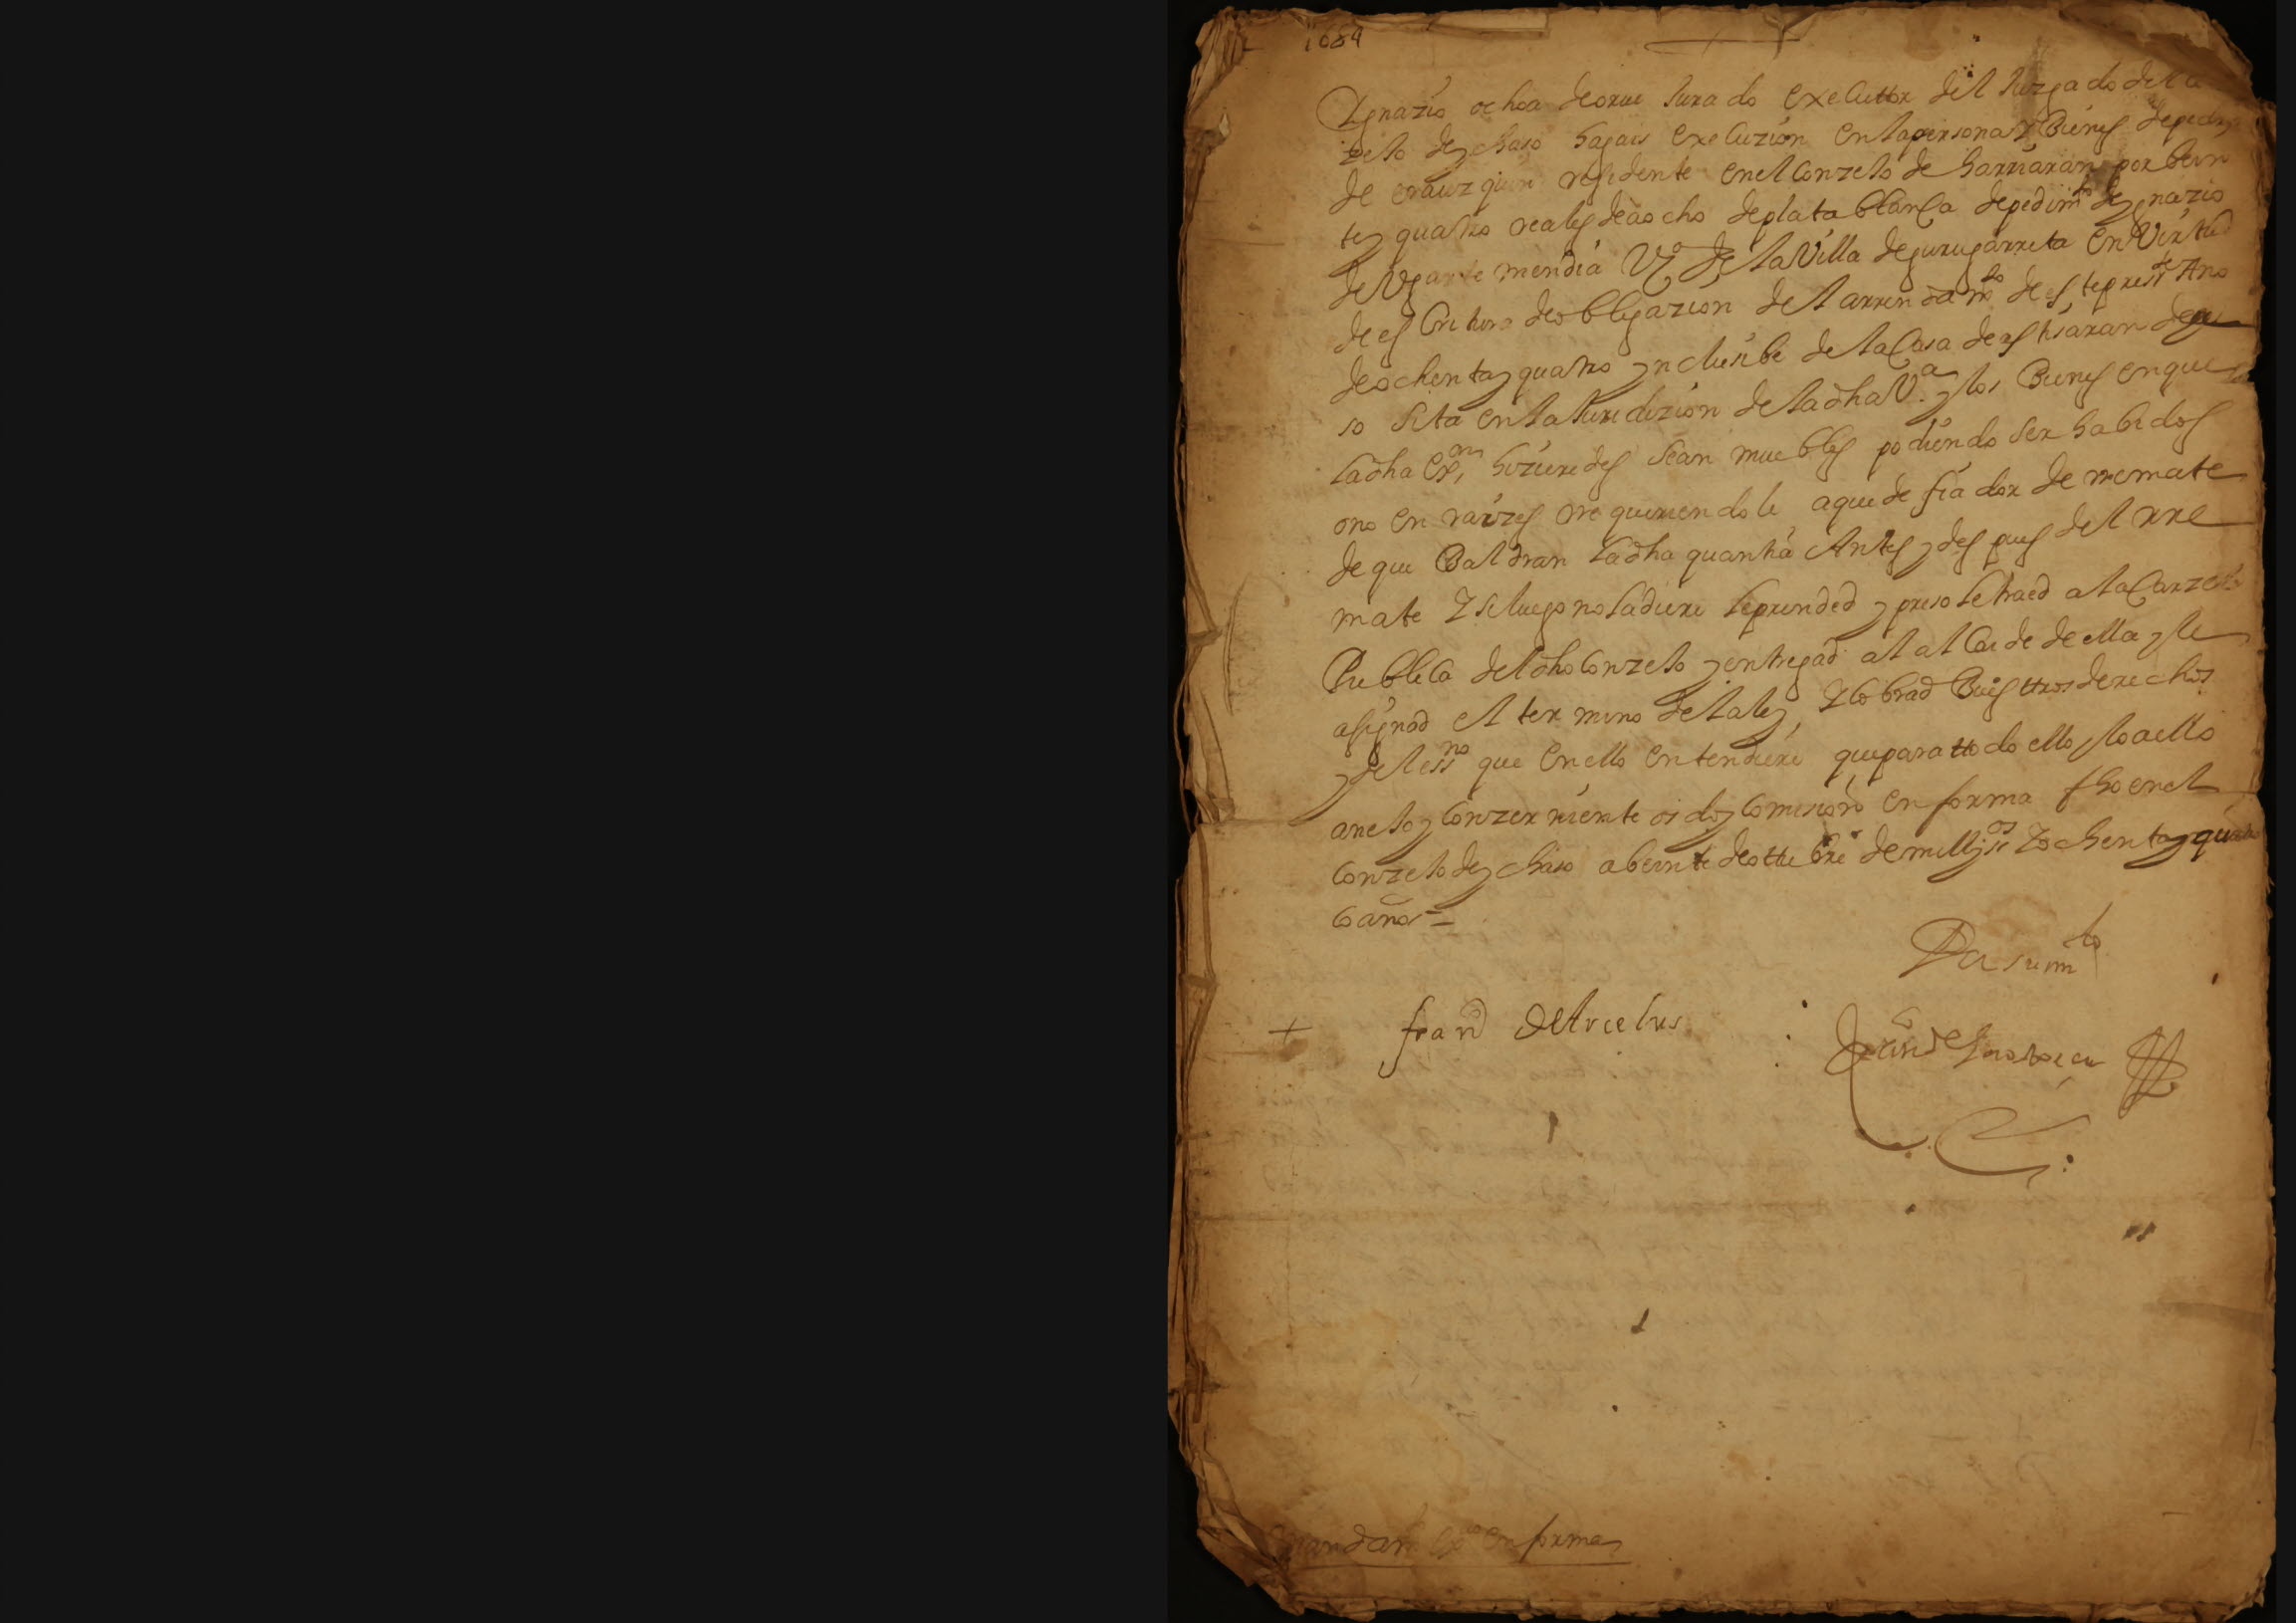 1684
Ygnazio ochoa de orue Jurado executtor del Juzgado del Co
zeJo de ychaso hagais execuzion en la persona y Bienes de pedro
de erauzquin residente en el ConzeJo de harriaran por bein
te y quatro reales de a ocho de plata blanca de pedimto de ygnazio
de Vgartemendia Vzo de la Villa de gurugarreta en Virtud
de escritura de obligazion del arrendamto de este presste Ano
de ochenta y quatro ynclusibe de la Casa de
so sita en la Juridizion de la dha Va y los Bienes en que
la dha exon hizieredes sean muebles pudiendo ser habidos
o no en raizes rrequiriendole a que de fiador de rremate
de que Baldran la dha quantia Antes y despues del rre
mate Y si luego no la diere le prended y preso le traed a la Carzel
Publica del dho ConzeJo y entregad al alCaide de ella y le
asignad el termino de la ley, Y Cobrad Buesttros derechos
y del essno que en ello entendiere que para ttodo ello y lo a ello
aneJo y Conzerniente os doy Comision en forma fho en el
ConzeJo de ychaso a beinte de ottubre de mill y ssos Y ochenta y quatr
o años =
Por su mto
+ franco de Arcelus
mandamto exo en forma